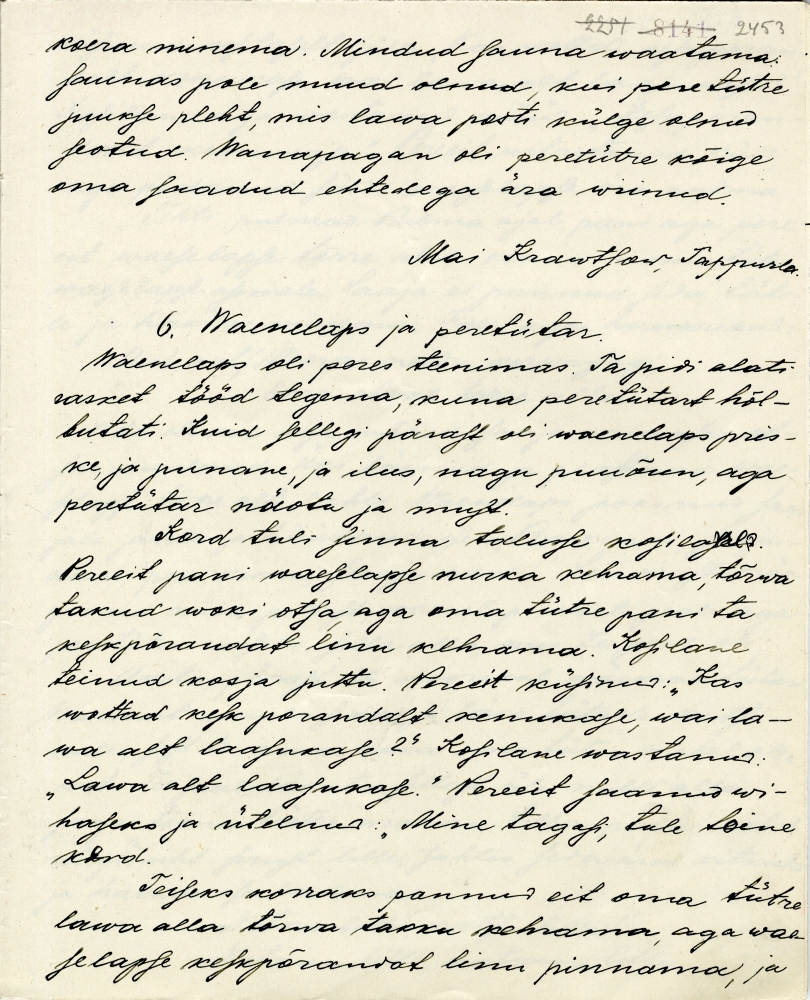 2251 8141 2453
koera minema. Mindud sauna waatama:
saunas pole muud olnud, kui peretütre
juukse pleht, mis lawa posti külge olnud
seotud. Wanapagan oli peretütre kõige
oma saadud ehtedega ära wiinud.
Mai Krawtsow, Tappurla.
6. Waenelaps ja peretütar.
Waenelaps oli peres teenimas. Ta pidi alati
rasket tööd tegema, kuna peretütart hõl-
butati. Kuid sellegi pärast oli waenelaps pris-
ke, ja punane, ja ilus, nagu puuõun, aga
peretütar näotu ja must.
Kord tuli sinna talusse kosilased.
Pereeit pani waeselapse nurka kehrama, tõrwa
takud woki otsa, aga oma tütre pani ta
keskpõrandat linu kehrama. Kosilane
teinud kosja juttu. Pereeit küsinud: „Kas
wottad kesk porandalt kenukase, wai la-
wa alt laasukase?" Kosilane wastanud:
„Lawa alt laasukase." Pereeit saanud wi-
haseks ja ütelnud: „Mine tagasi, tule teine
kord.
Teiseks korraks pannud eit oma tütre
lawa alla tõrwa takku kehrama, aga wae-
selapse keskpõrandat linu pinnama, ja